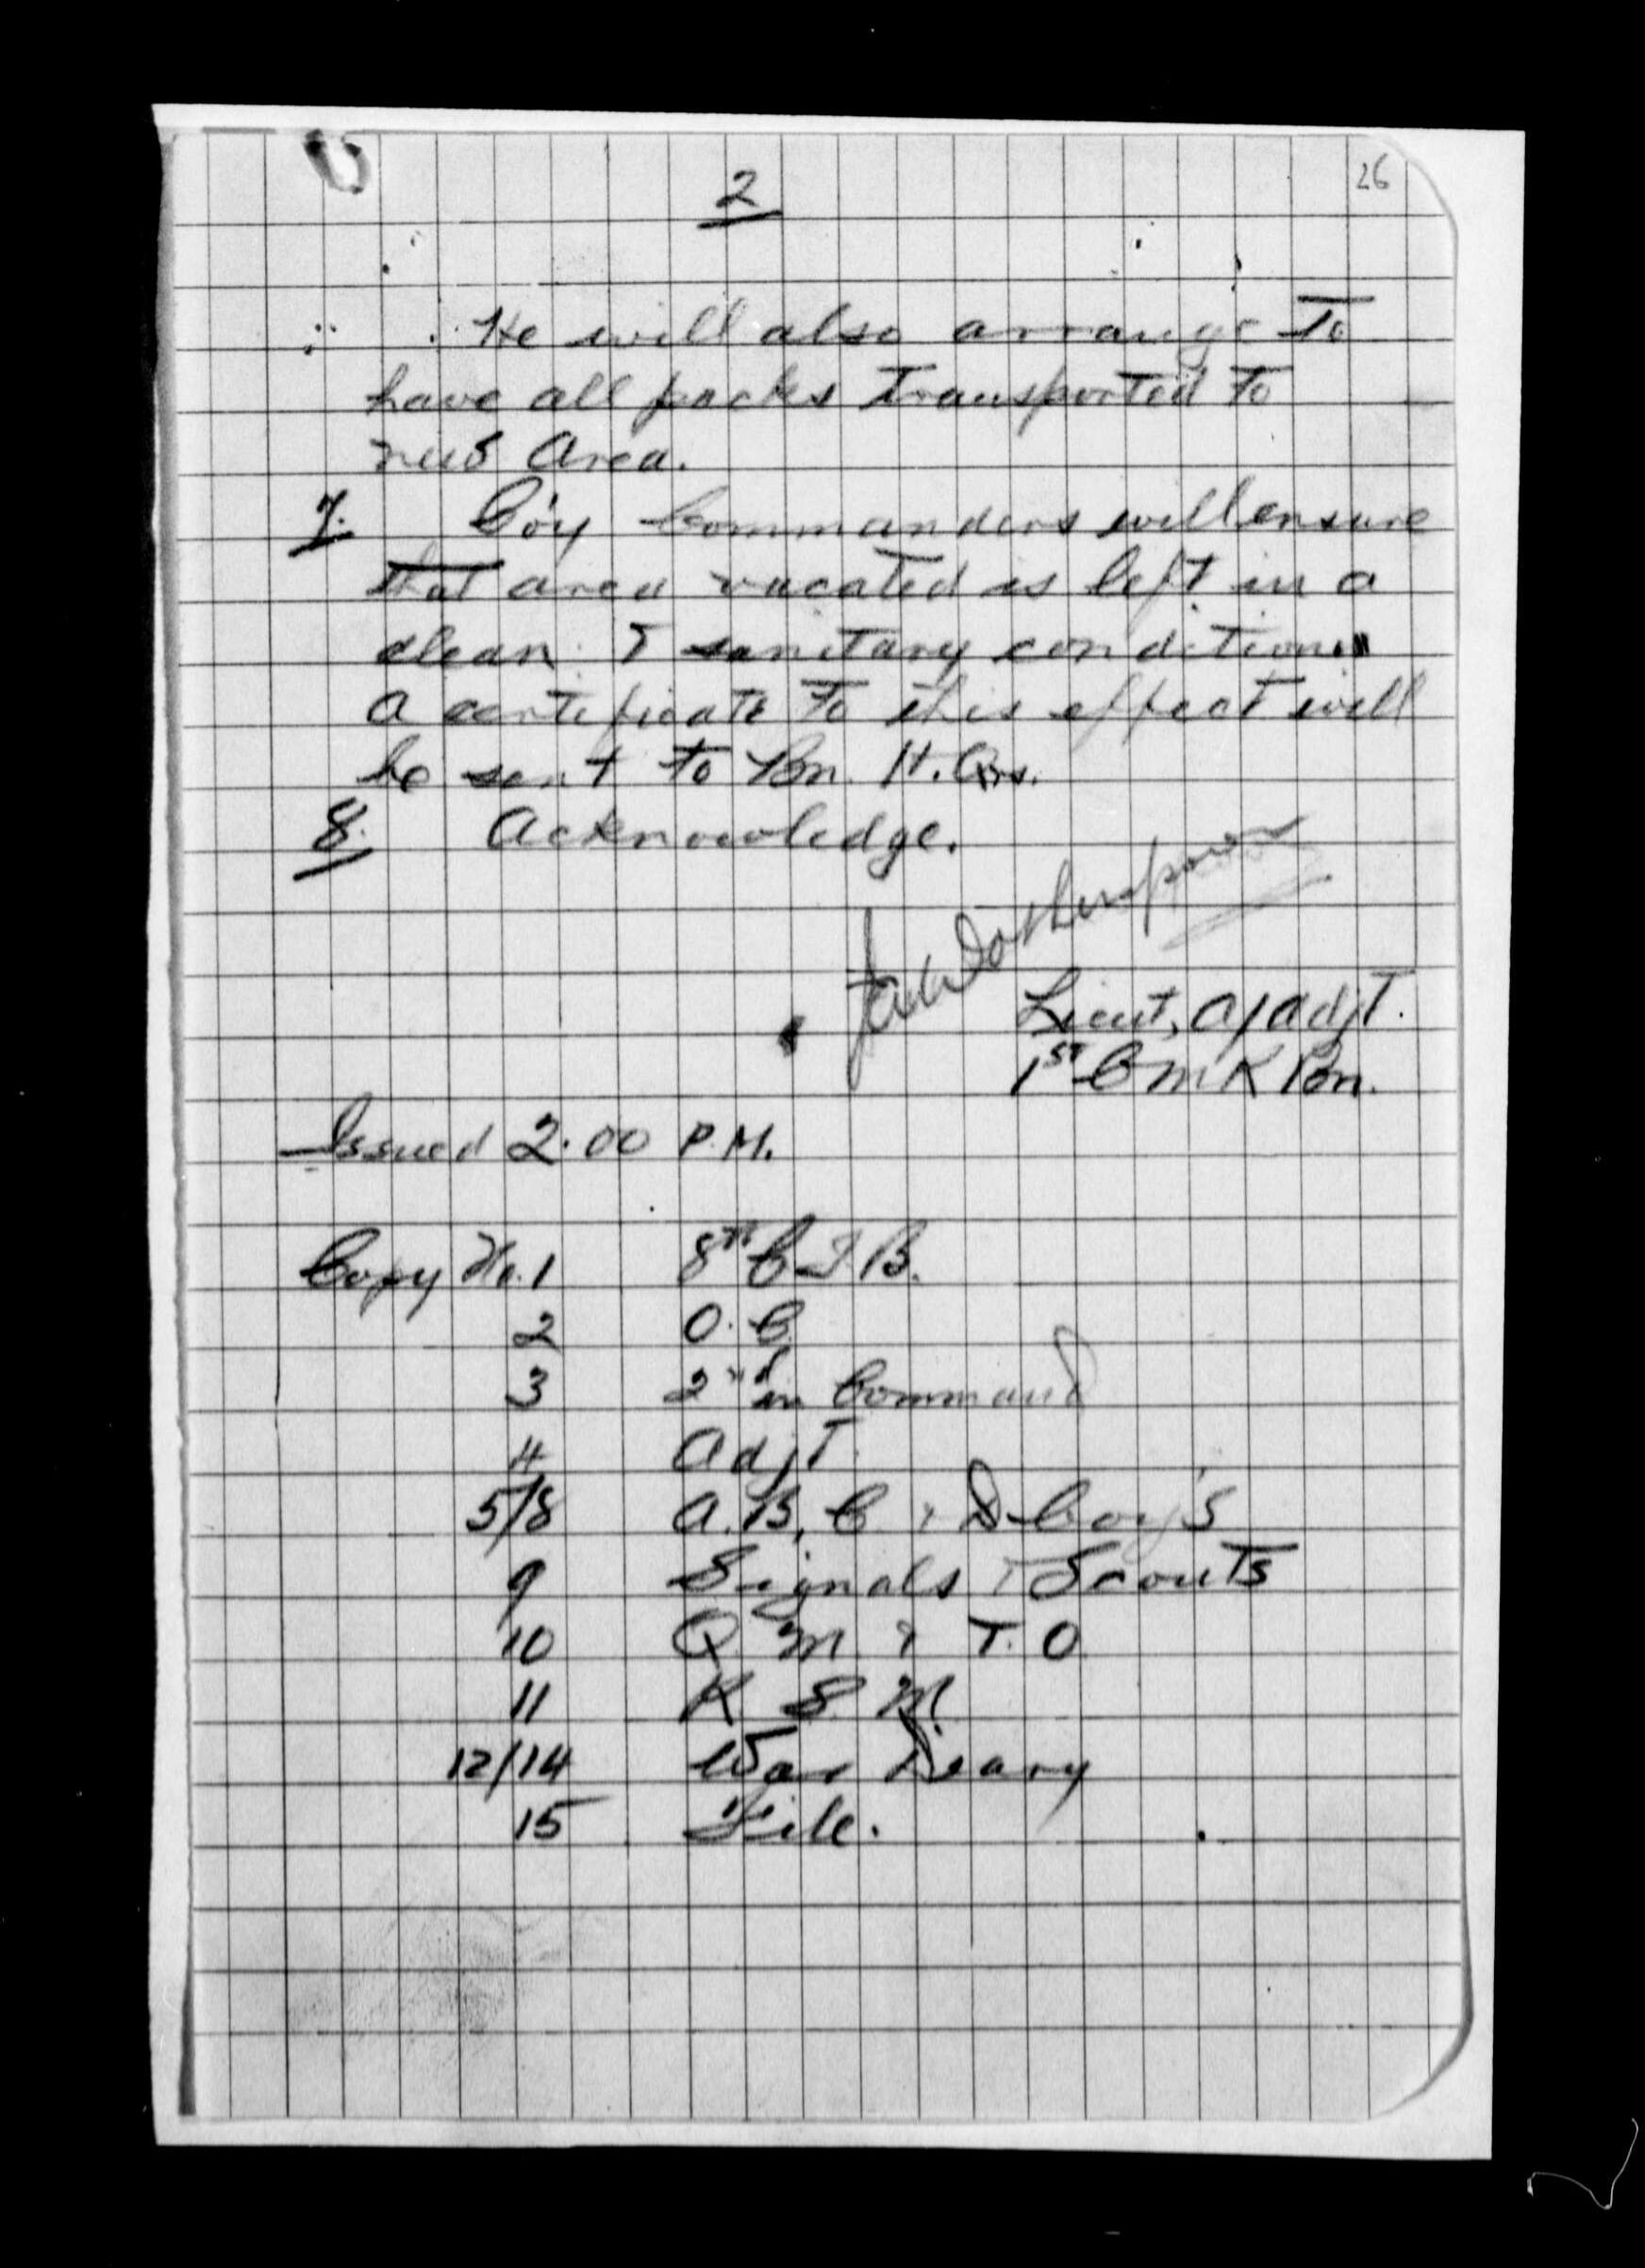 26
2
He will also arrange to
have all packs transported to
new Area.
7. Co'y Commanders will ensure
that area vacated is left in a
clean & sanitary condition
a certificate to this effect will
be sent to Bn. H. Qrs.
8. Acknowledge.
Lieut, A/Adjt.
1st C M R Bn.
Issued 2.00 P.M.
Copy No. 1 8th C I B.
2 O. C
3 2nd in Command
4 Adjt
5/8 A. B, C & D Coy's
9 Signals & Scouts
10 Q M & T. O
11 R S M.
12/14 War Diary
15 File.